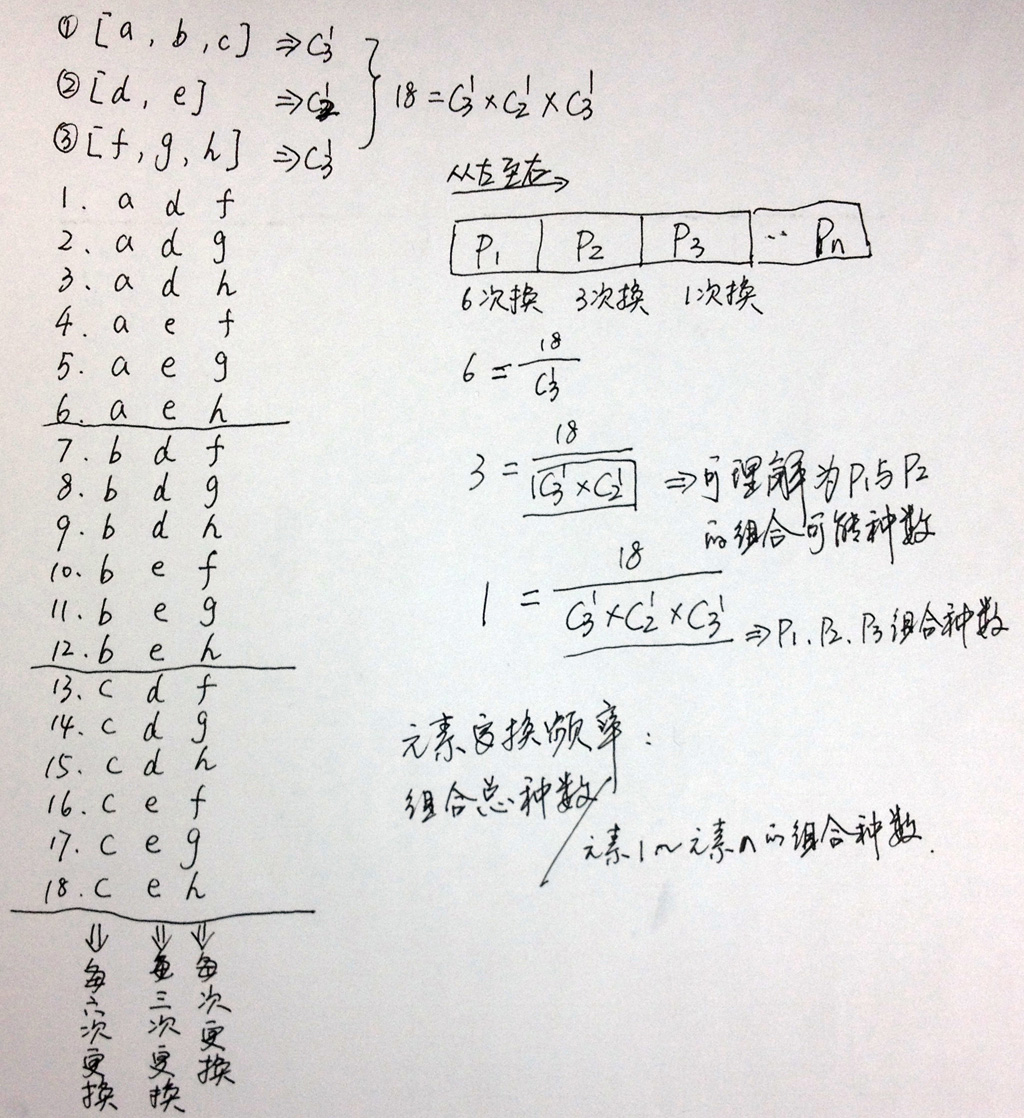 ① [a, b, c] ⇒ C₃¹
② [d, e] ⇒ C₂¹
③ [f, g, h] ⇒ C₃¹
18 = C₃¹ × C₂¹ × C₃¹
1. a d f
2. a d g
3. a d h
4. a e f
5. a e g
6. a e h
7. b d f
8. b d g
9. b d h
10. b e f
11. b e g
12. b e h
13. c d f
14. c d g
15. c d h
16. c e f
17. c e g
18. c e h
⇓ ⇓ ⇓
每六次更换
每三次更换
每次更换
从左至右
P₁ P₂ P₃ ·· Pn
6次换 3次换 1次换
6 = 18 / C₃¹
3 = 18 / C₃¹ × C₂¹ ⇒ 可理解为P₁与P₂
的组合可能种数
1 = 18 / C₃¹ × C₂¹ × C₃¹ ⇒ P₁、P₂、P₃组合种数
元素更换频率：
组合总种数 /
元素1~元素n的组合种数.